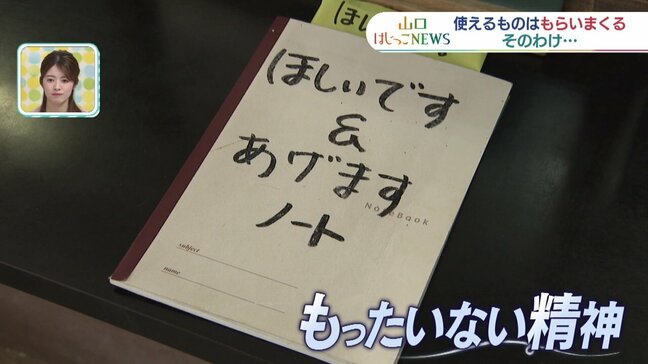 山口
はしっこNEWS
使えるものはもらいまくる
そのわけ…
ほし
ほしいです
&
あげます
ノート
NoteBook
subject
name
もったいない精神